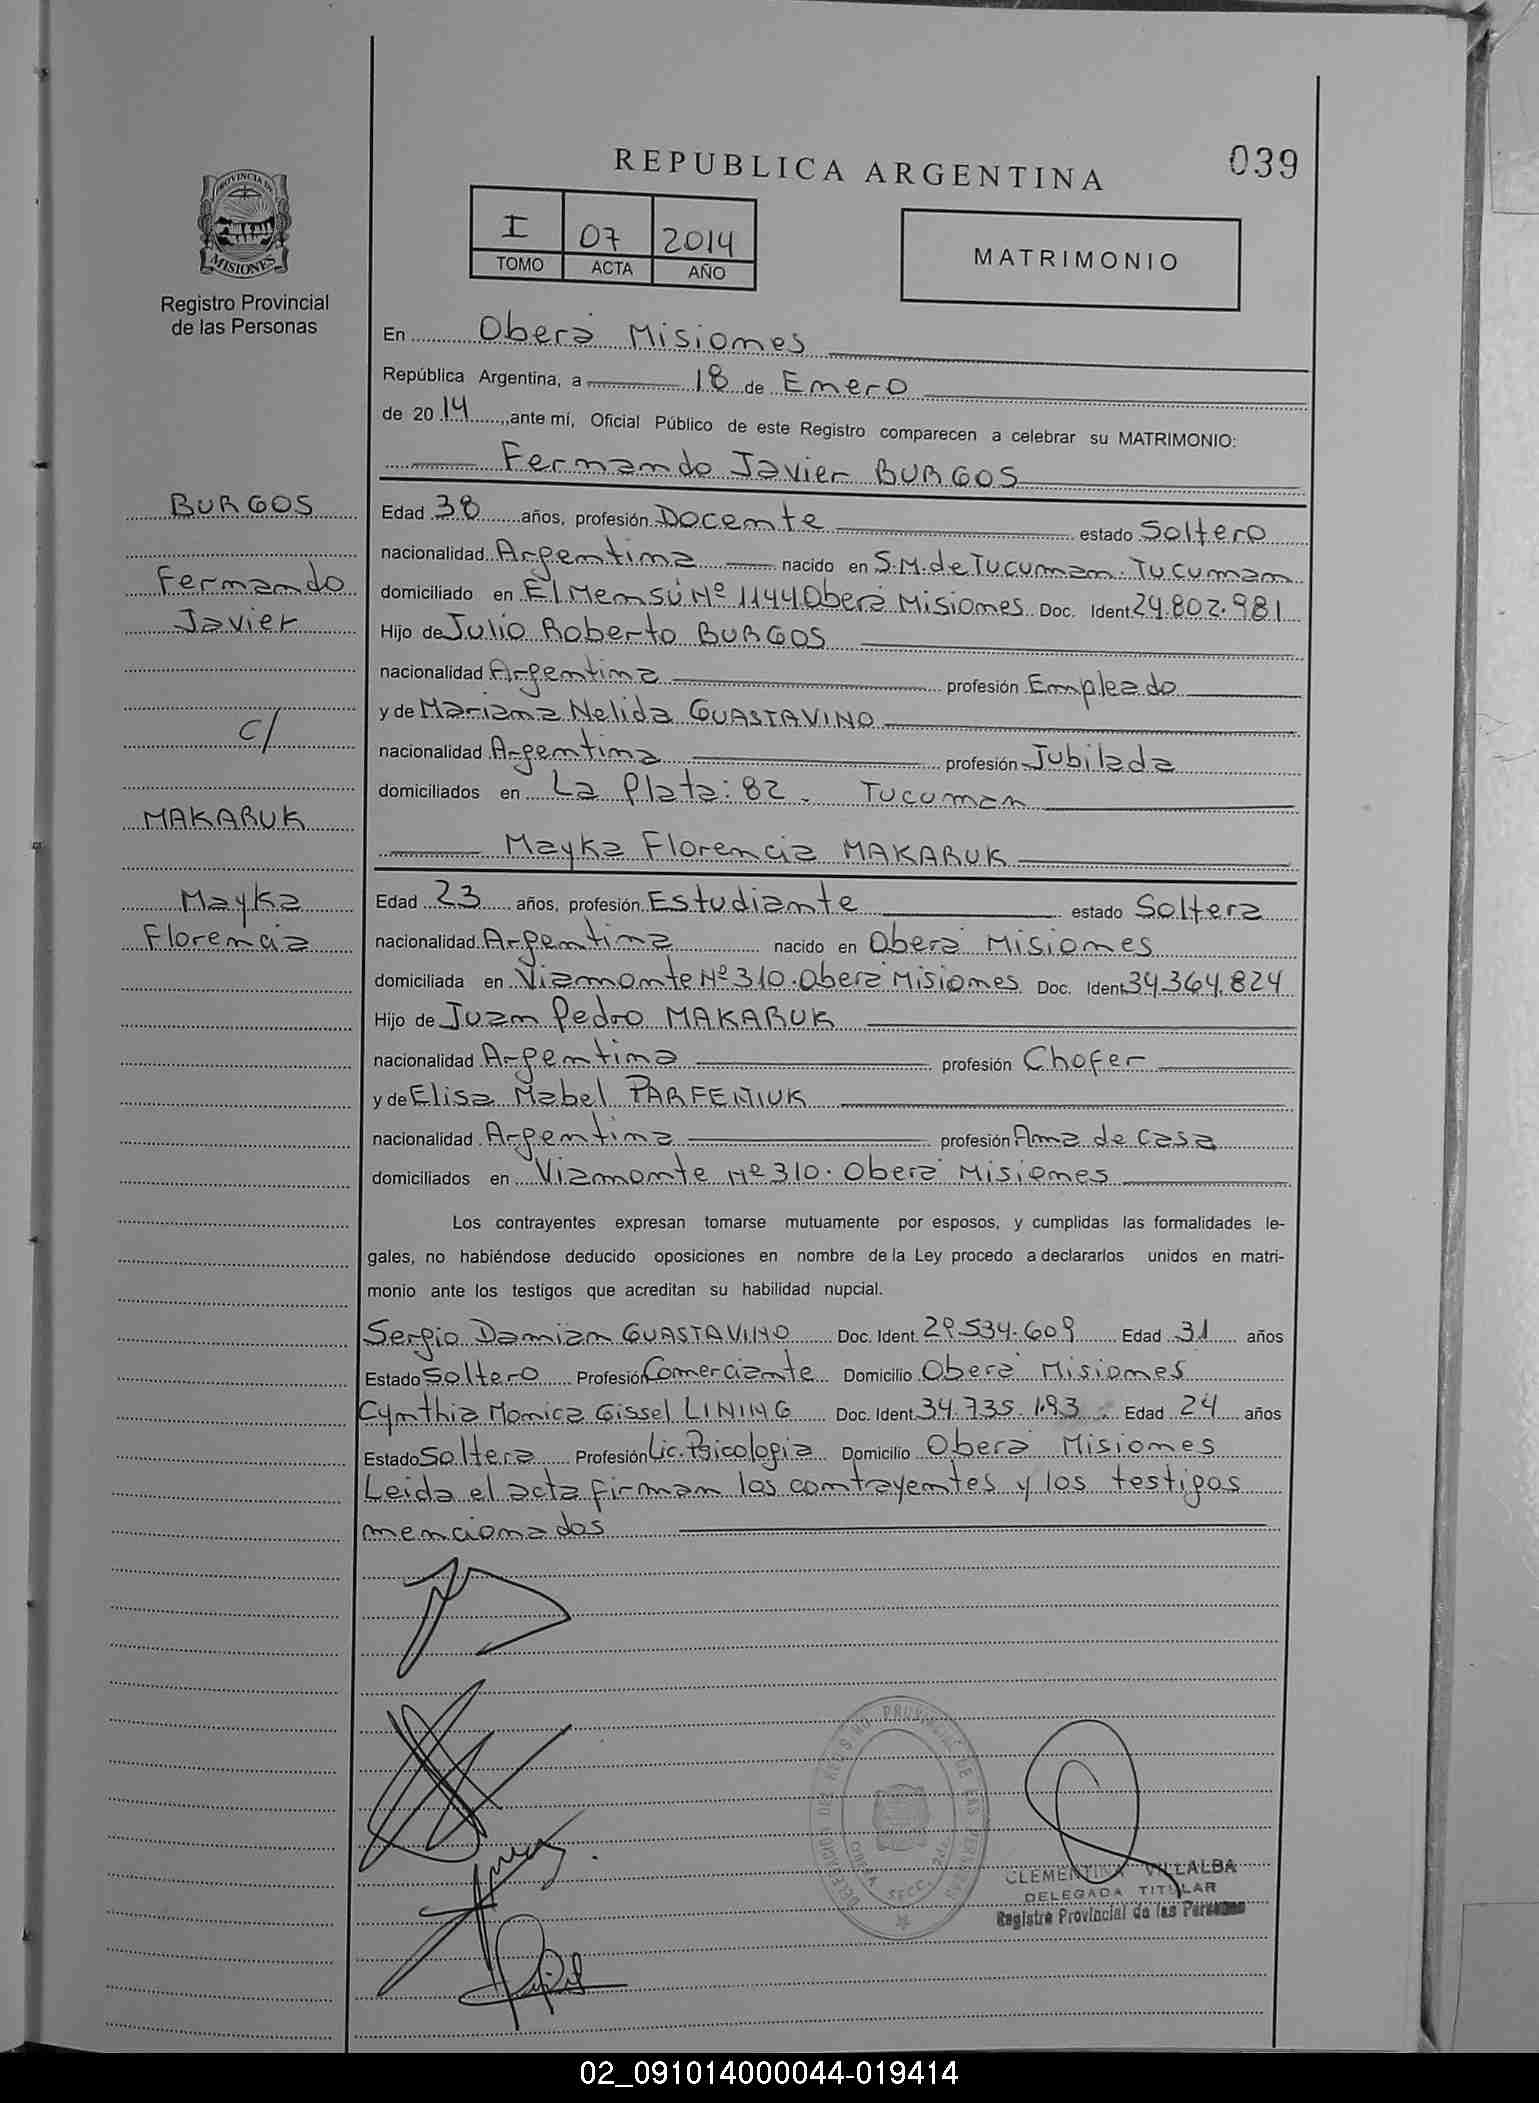 REPUBLICA ARGENTINA
039
PROVINCIA DE
MISIONES
Registro Provincial
de las Personas
I 07 2014
TOMO ACTA AÑO
MATRIMONIO
En Oberá Misiones
República Argentina, a 18 de Enero
de 2014, ante mí, Oficial Público de este Registro comparecen a celebrar su MATRIMONIO:
Fernando Javier BURGOS
BURGOS
Fernando
Javier
C/
MAKARUK
Mayka
Florencia
Edad 38 años, profesión Docente estado Soltero
nacionalidad Argentina nacido en S.M. de Tucuman. Tucuman
domiciliado en El Mensú Nº 1144 Oberá Misiones Doc. Ident. 24.802.981
Hijo de Julio Roberto BURGOS
nacionalidad Argentina profesión Empleado
y de Mariana Nelida GUASTAVINO
nacionalidad Argentina profesión Jubilada
domiciliados en La Plata: 82. Tucuman
Mayka Florencia MAKARUK
Edad 23 años, profesión Estudiante estado Soltera
nacionalidad Argentina nacido en Oberá Misiones
domiciliada en Viamonte Nº 310. Oberá Misiones Doc. Ident. 34.364.824
Hijo de Juan Pedro MAKARUK
nacionalidad Argentina profesión Chofer
y de Elisa Mabel PARFENIUK
nacionalidad Argentina profesión Ama de casa
domiciliados en Viamonte Nº 310. Oberá Misiones
Los contrayentes expresan tomarse mutuamente por esposos, y cumplidas las formalidades le-
gales, no habiéndose deducido oposiciones en nombre de la Ley procedo a declararlos unidos en matri-
monio ante los testigos que acreditan su habilidad nupcial.
Sergio Damian GUASTAVINO Doc. Ident. 29.534.609 Edad 31 años
Estado Soltero Profesión Comerciante Domicilio Oberá Misiones
Cynthia Monica Gissel LINING Doc. Ident. 34.735.193 Edad 24 años
Estado Soltera Profesión Lic. Psicologia Domicilio Oberá Misiones
Leida el acta firman los contrayentes y los testigos
mencionados
DELEGACION DEL REGISTRO PROVINCIAL DE LAS PERSONAS
OBERA SECC. 2da.
CLEMENTINA VILLALBA
DELEGADA TITULAR
Registro Provincial de las Personas
02_091014000044-019414